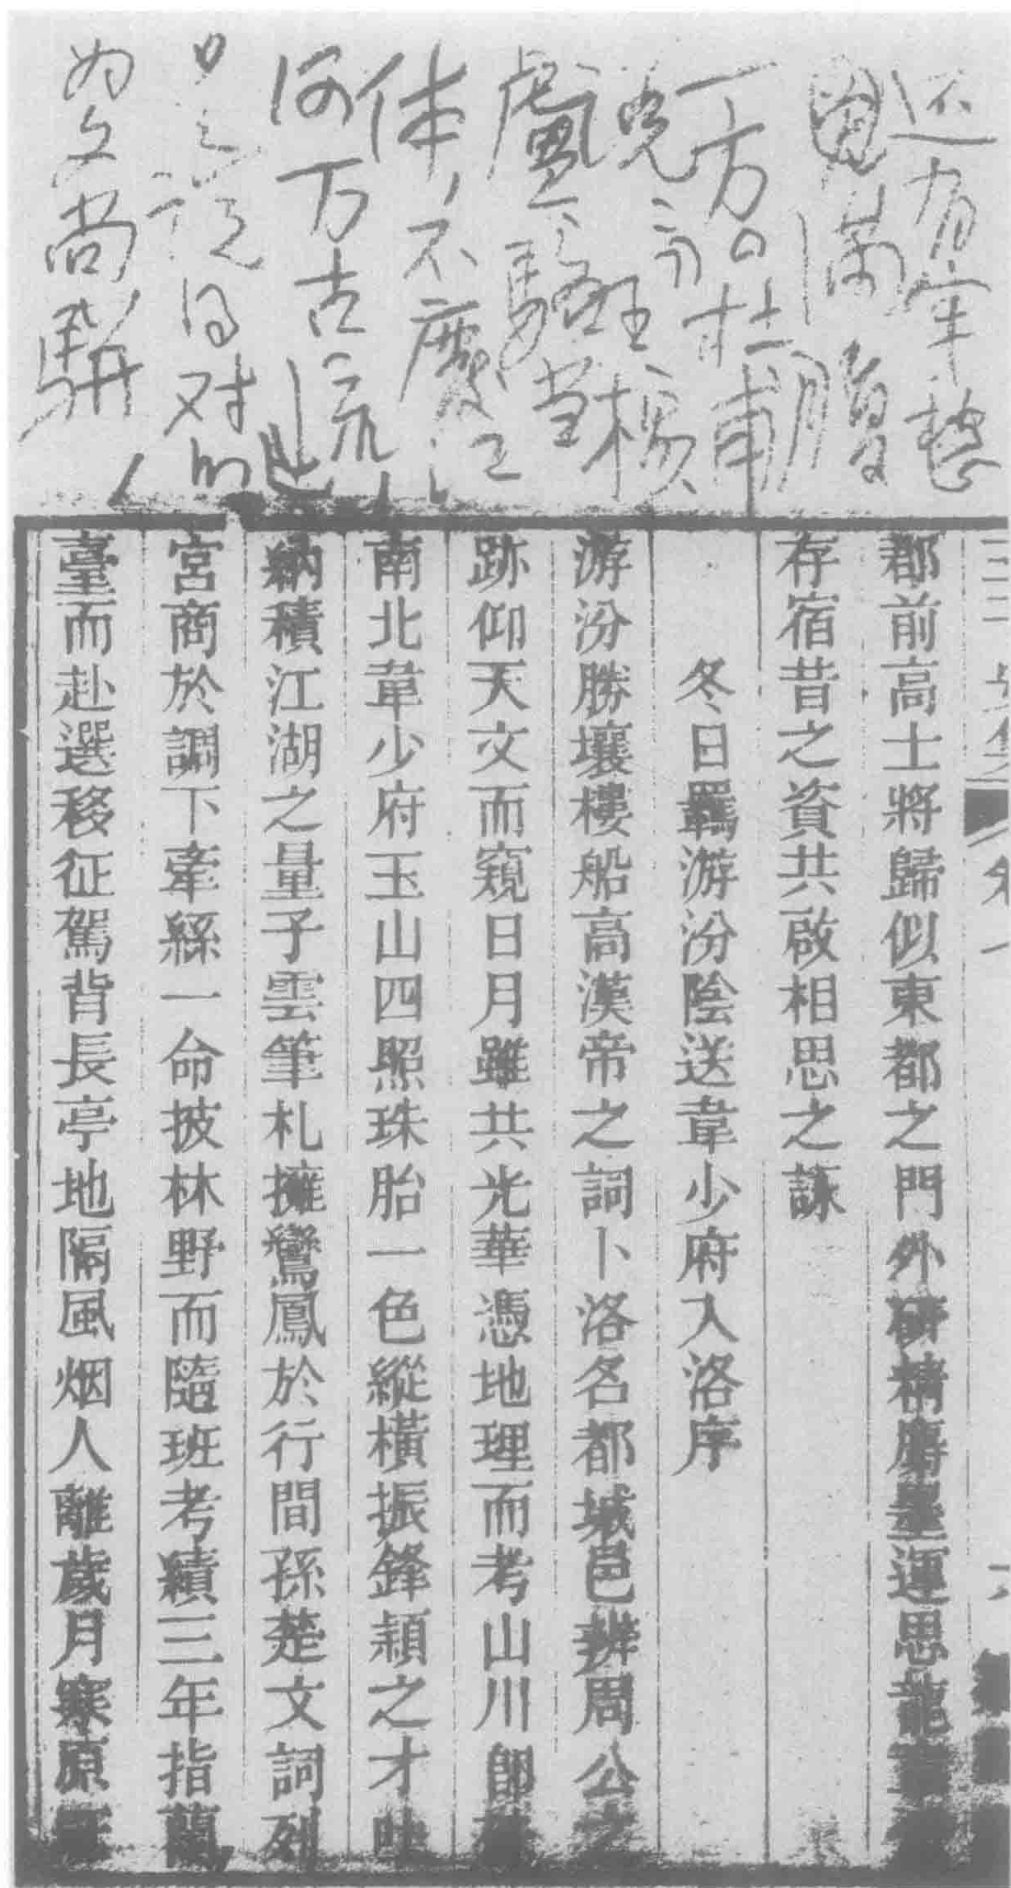 还有牢愁
满腹
一方。杜甫
说 王杨
卢骆当
体，不废江
河万古流
是说得对的
为文尚骈
郡前高士將歸似東都之門外研精麝墨運思龍
存宿昔之資共啟相思之詠
冬日羈游汾陰送韋少府入洛序
游汾勝壤樓船高漢帝之詞卜洛名都城邑辨周公之
跡仰天文而窺日月雖共光華憑地理而考山川卽
南北韋少府玉山四照珠胎一色縱橫振鋒穎之才吐
納積江湖之量子雲筆札擁鸞鳳於行間孫楚文詞列
宮商於調下牽絲一命披林野而隨班考績三年指蘭
臺而赴選移征駕背長亭地隔風烟人離歲月寒原